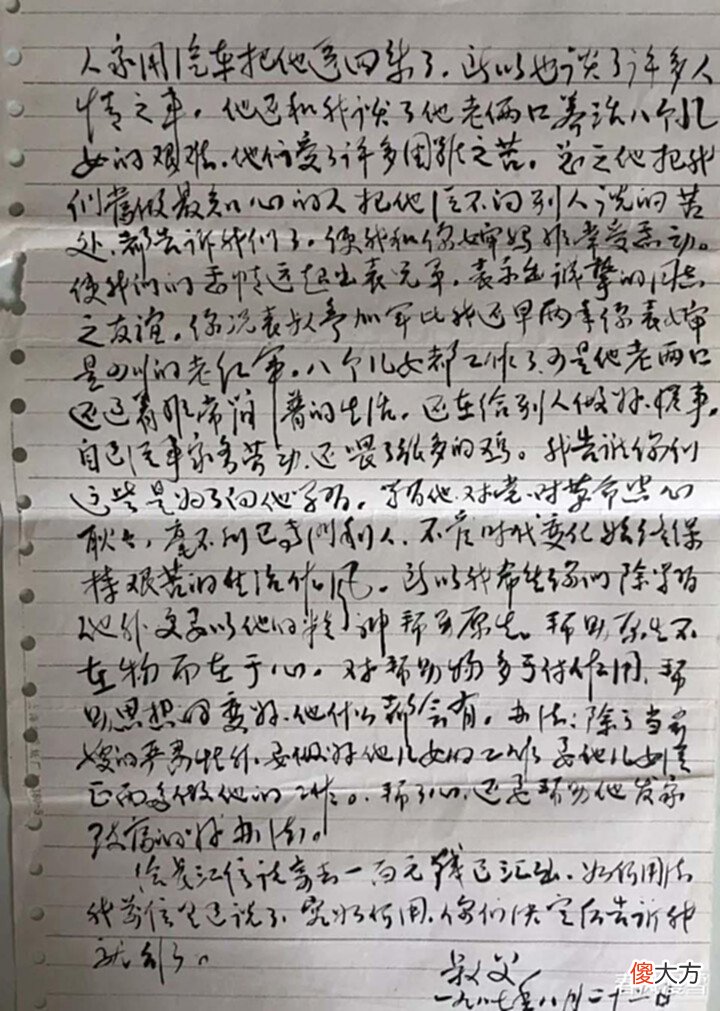 人家用汽车把他送回来了。所以也谈了许多人
情之事。他还和我谈了他老俩口养活八个儿
女的艰难。他们受了许多困难之苦。总之他把我
们当做最知心的人把他从不向别人说的苦
处,都告诉我们了。使我和你婶妈非常受感动。
使我们的感情远超出表兄弟,表示出诚挚的同志
之友谊。你况表叔参加军比我还早两年你表婶
是四川的老红军。八个儿女都工作了可是他老两口
还过着非常简普的生活。还在给别人做好事。
自己从事家务劳动,还喂了很多的鸡。我告诉你们
这些是为了向他学习。学习他对党对革命忠心
耿耿,毫不利己专门利人,不管时代变化始终保
持艰苦的生活作风。所以我希望你们除学习
他外更要以他的精神帮助原生。帮助原生不
在物而在于心。对帮助物多于付作用,帮
助思想的变好他什么都会有。办法:除了当
嫂的严 外,要做好他儿女的工作要他儿女
正面多做他的工作。帮了心,还要帮助他发家
致富的好办法。
给长江信说寄去一百元钱已汇出,如何用法
我前信里已说了,究如何用,你们决定后告诉我
就行了。
叔父
一九八七年八月二十二日
傻大方